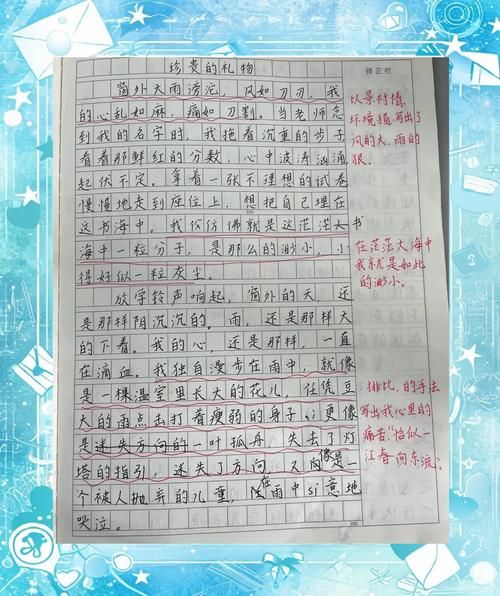 珍贵的礼物
修正栏
窗外大雨滂沱，风如刀刃，我
的心乱如麻，痛如刀割。当老师念
到我的名字时，我拖着沉重的步子
看着那鲜红的分数，心中波涛汹涌
起伏不定。拿着一张不理想的试卷
慢慢地走到座位上，想把自己埋在
这书海中。我仿佛就是这茫茫大书
海中一粒分子，是那么的渺小，小
得好似一粒灰尘。
放学铃声响起，窗外的天，还
是那样阴沉沉的。雨，还是那样大
的下着。我的心，还是那样，一直
在滴血。我独自漫步在雨中，就像
是一棵温室里长大的花儿，任凭豆
大的雨点击打着瘦弱的身子；更像
是迷失方向的一叶孤舟，失去了灯
塔的指引，迷失了方向，又像是一
个被人抛弃的儿童，在雨中si意地
哭泣。
300
以景衬情，
环境描写出了
风的大，雨的
狠。
在茫茫大海中
我就是如此
的渺小。
排比，的手法
写出我心里的
痛苦"恰似一
江春向东流"。